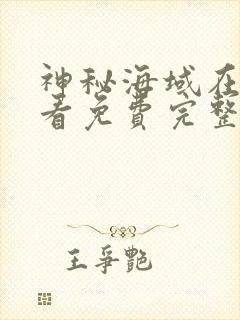 神秘海域在
看免费完整
王爭艷